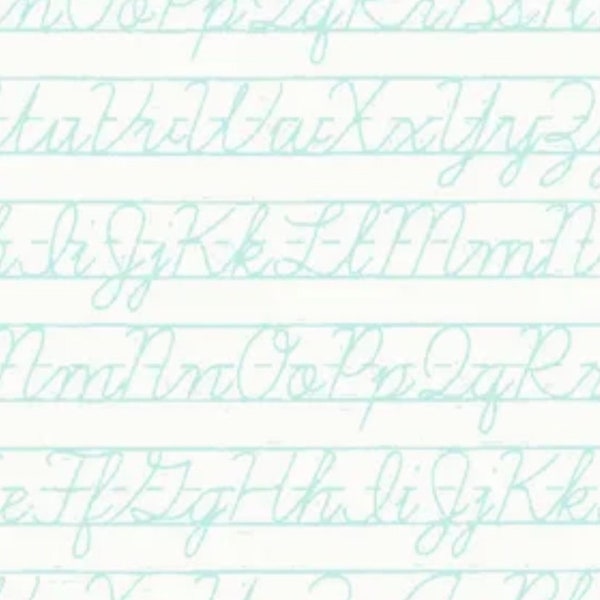 n Oo Pp Qq Rr Ss
u Vv Ww Xx Yy Zz
Ii Jj Kk Ll Mm N
Mm Nn Oo Pp Qq Rr
e Ff Gg Hh Ii Jj Kk